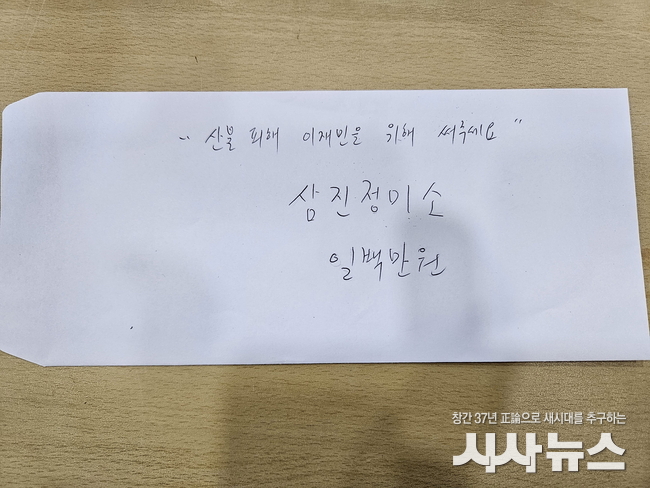 " 산불 피해 이재민을 위해 써주세요 "
삼진정미소
일백만원
창간 37년 正論으로 새시대를 추구하는
시사뉴스